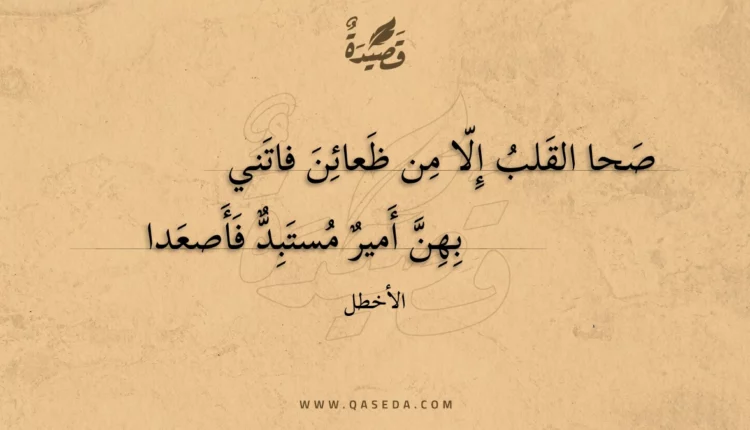 قَصِيدَةٌ
صَحا القَلبُ إِلّا مِن ظَعائِنَ فاتَني
بِهِنَّ أَميرٌ مُستَبِدٌّ فَأَصعَدا
الأخطل
WWW.QASEDA.COM